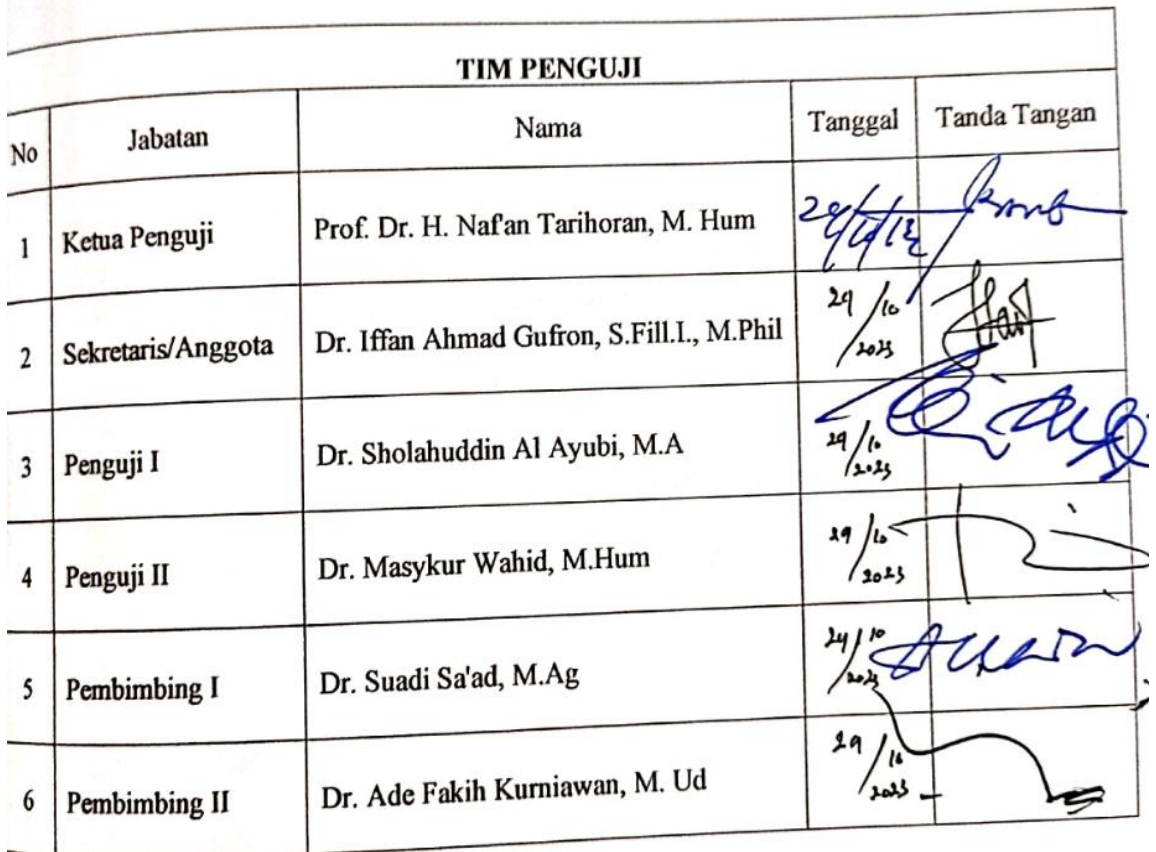 TIM PENGUJI
No Jabatan Nama Tanggal Tanda Tangan
1 Ketua Penguji Prof. Dr. H. Naf'an Tarihoran, M. Hum
2 Sekretaris/Anggota Dr. Iffan Ahmad Gufron, S.Fill.I., M.Phil 29/10 2023
3 Penguji I Dr. Sholahuddin Al Ayubi, M.A 29/10 2023
4 Penguji II Dr. Masykur Wahid, M.Hum 29/10 2023
5 Pembimbing I Dr. Suadi Sa'ad, M.Ag 2023
6 Pembimbing II Dr. Ade Fakih Kurniawan, M. Ud 29/10 2023